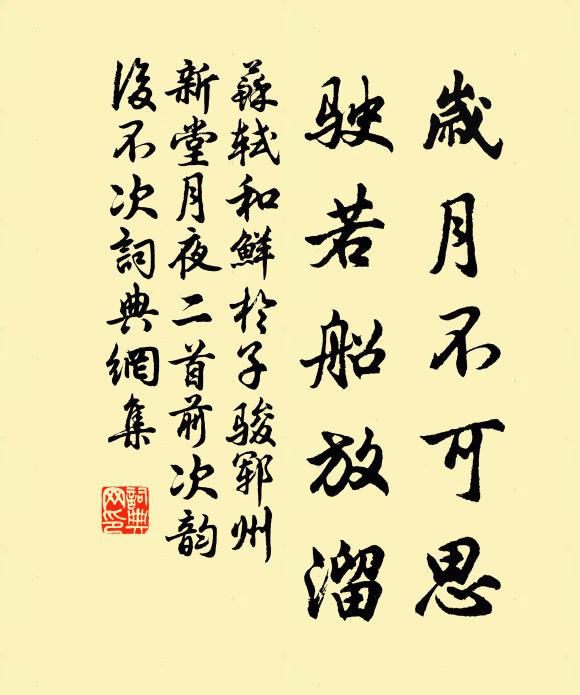 歲月不可思
駛若船放溜
蘇軾和鮮於子駿鄆州
新堂月夜二首前次韵
後不次詞典網集
詞典网印